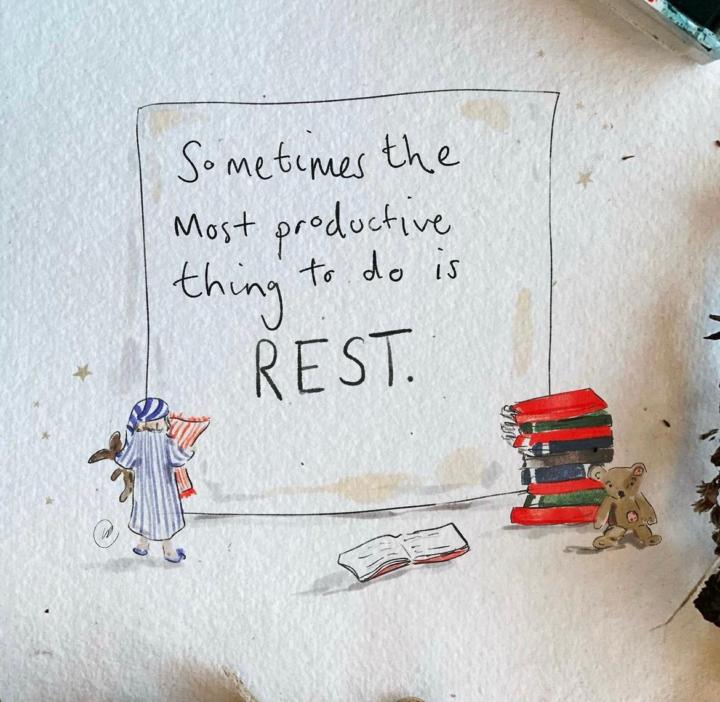 Sometimes the
Most productive
thing to do is
REST.